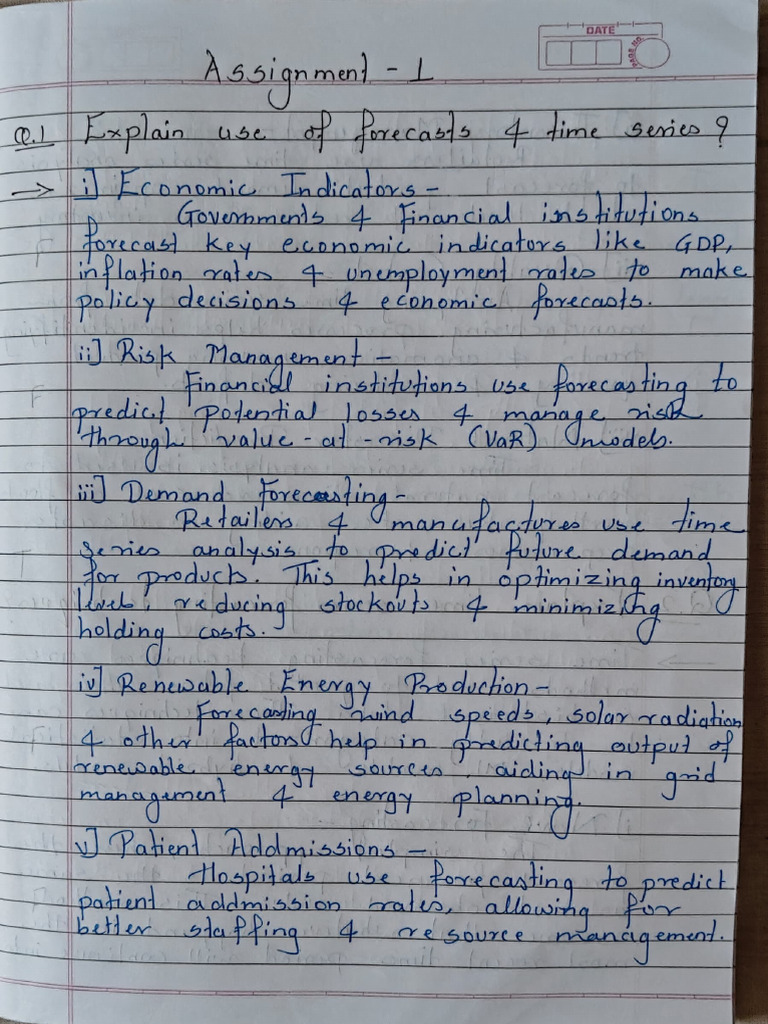 DATE
PAGE NO.
Assignment - 1
Q.1 Explain use of forecasts & time series ?
→ i] Economic Indicators -
Governments & Financial institutions
forecast key economic indicators like GDP,
inflation rates & unemployment rates to make
policy decisions & economic forecasts.
ii] Risk Management -
Financial institutions use forecasting to
predict potential losses & manage risk
through value-at-risk (VaR) models.
iii] Demand Forecasting -
Retailers & manufactures use time
series analysis to predict future demand
for products. This helps in optimizing inventory
levels, reducing stockouts & minimizing
holding costs.
iv] Renewable Energy Production -
Forecasting wind speeds, solar radiation
& other factors help in predicting output of
renewable energy sources, aiding in grid
management & energy planning.
v] Patient Addmissions -
Hospitals use forecasting to predict
patient addmission rates, allowing for
better staffing & resource management.